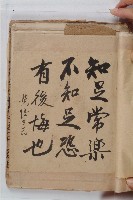 知足常樂
不知足恐
有後悔也